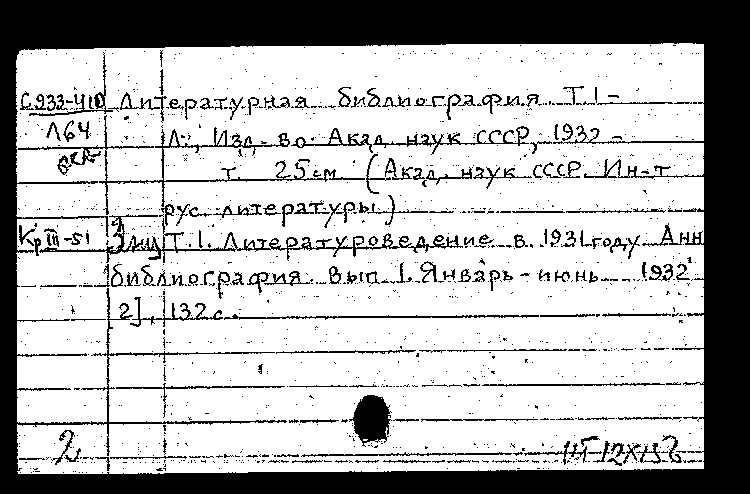 С933-410 Литературная библиография. Т.1-
Л64 Л., Изд-во Акад. наук СССР, 1932 -
т. 25 см. (Акад. наук СССР. Ин-т
рус. литературы.)
Кр III-51 Т.1. Литературоведение в 1931 году. Анн
библиография. Вып. 1. Январь-июнь 1932
[2], 132 с.
2